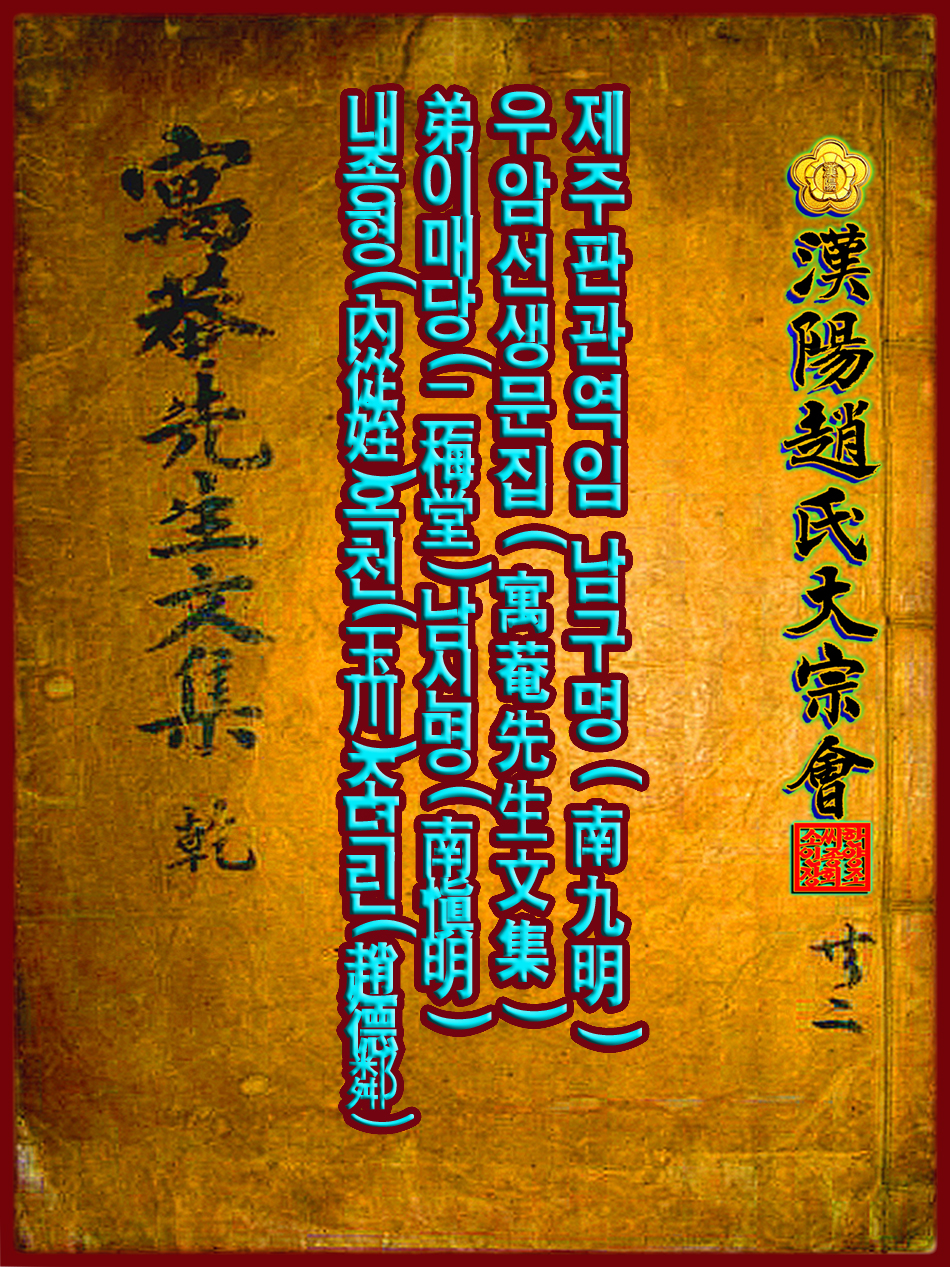 漢陽趙氏大宗會
漢陽
한양조
씨종회
소이장
廿二
제주판관역임 남구명(南九明)
우암선생문집(寓菴先生文集)
弟이매당(二梅堂)남신명(南愼明)
내종형(內從姪)옥천(玉川)조덕린(趙德鄰)
寓菴先生文集 乾